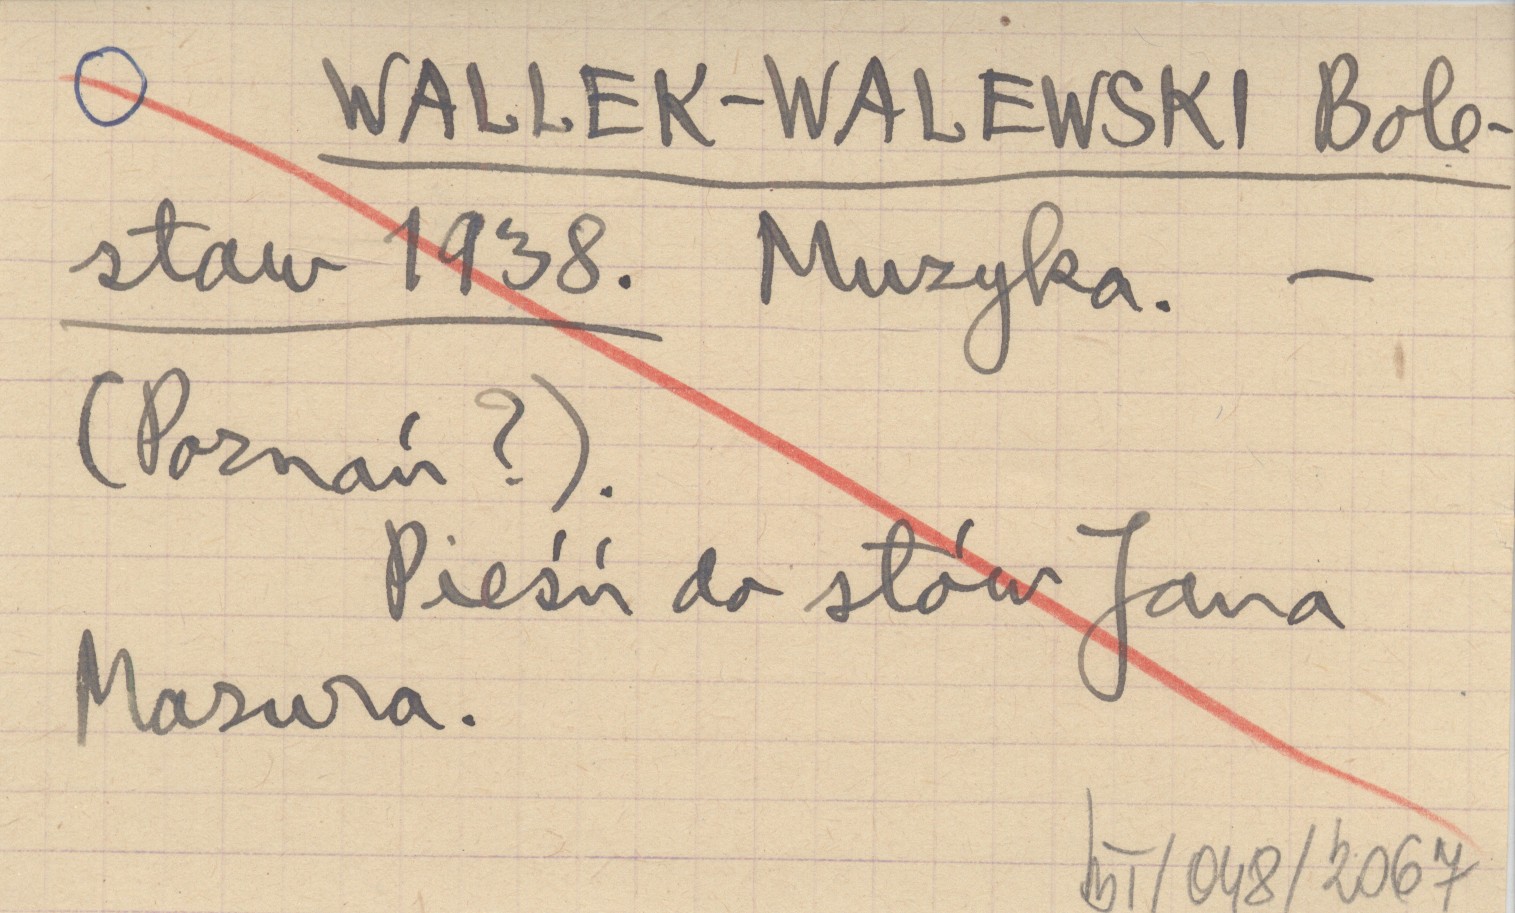 WALLEK-WALEWSKI Bole-
sław 1938. Muzyka. —
(Poznań?).
Pieśń do słów Jana
Mazura.
/048/2067